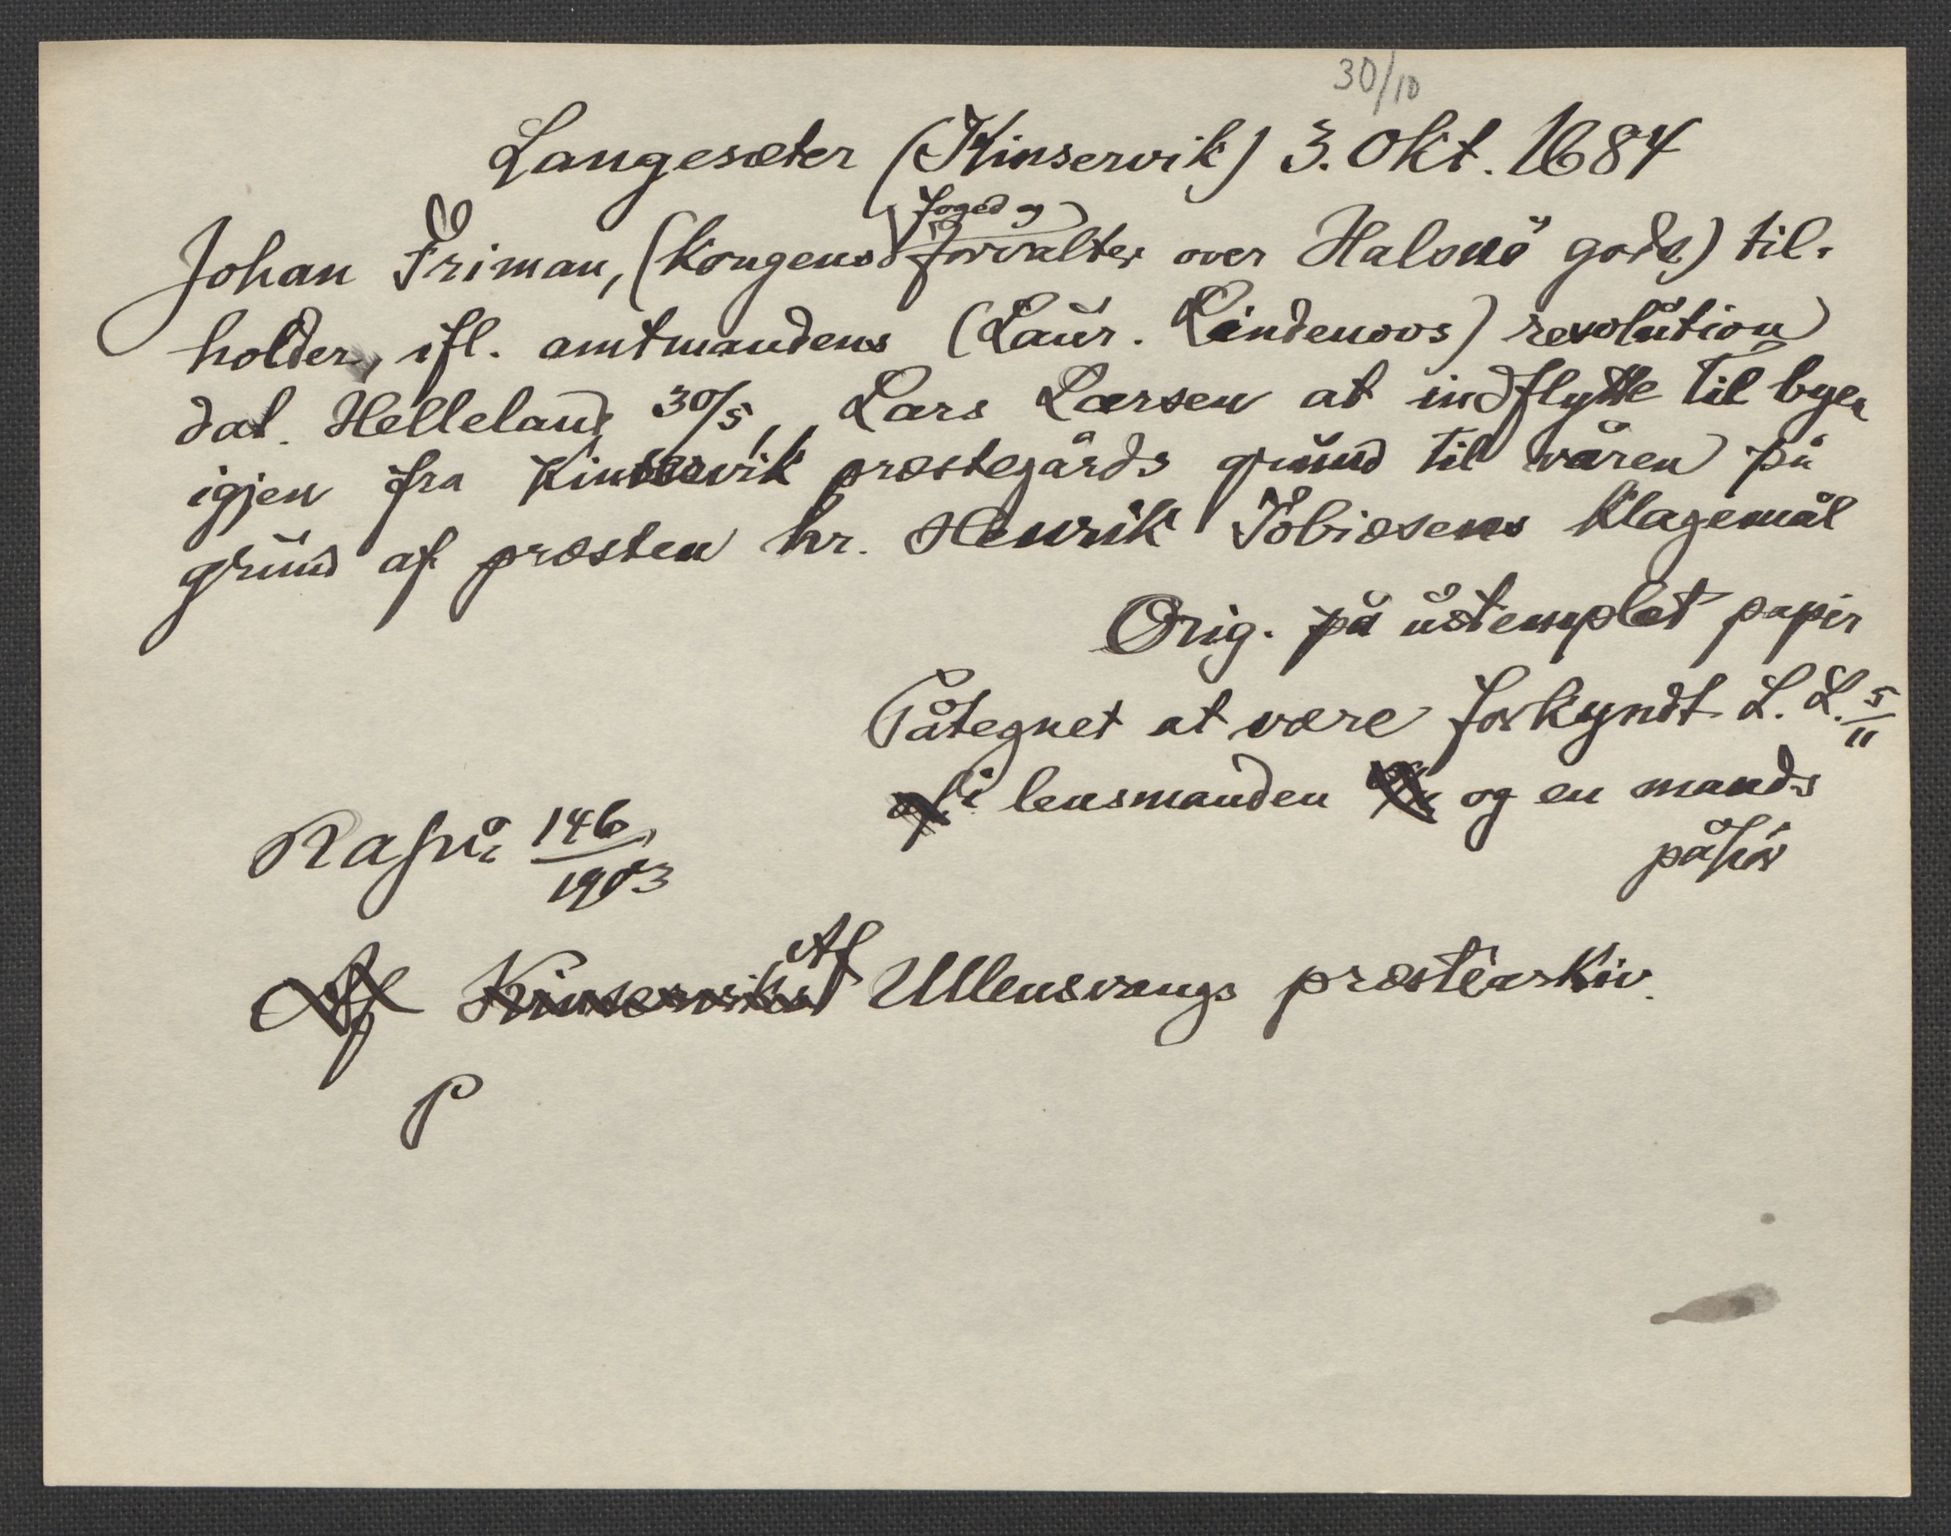 30/10
Langesæter (Kinservik) 3. Okt. 1684
foged og
Johan Friman, (Kongens forvalter over Halsnö gods) til-
holder, ifl. amtmandens (Laur. Lindenovs) resolution
dat. Helleland 30/5, Lars Larsen at indflytte til byen
igjen fra Kinservik præstegårds grund til våren på
grund af præsten hr. Henrik Tobiasens klagemål
Orig. på ustemplet papir
Påtegnet at være forkyndt L. L. 5/11
i lensmanden og en mands
påhör
Rapu: 146/1903
Af Ullensvangs præstearkiv.
P